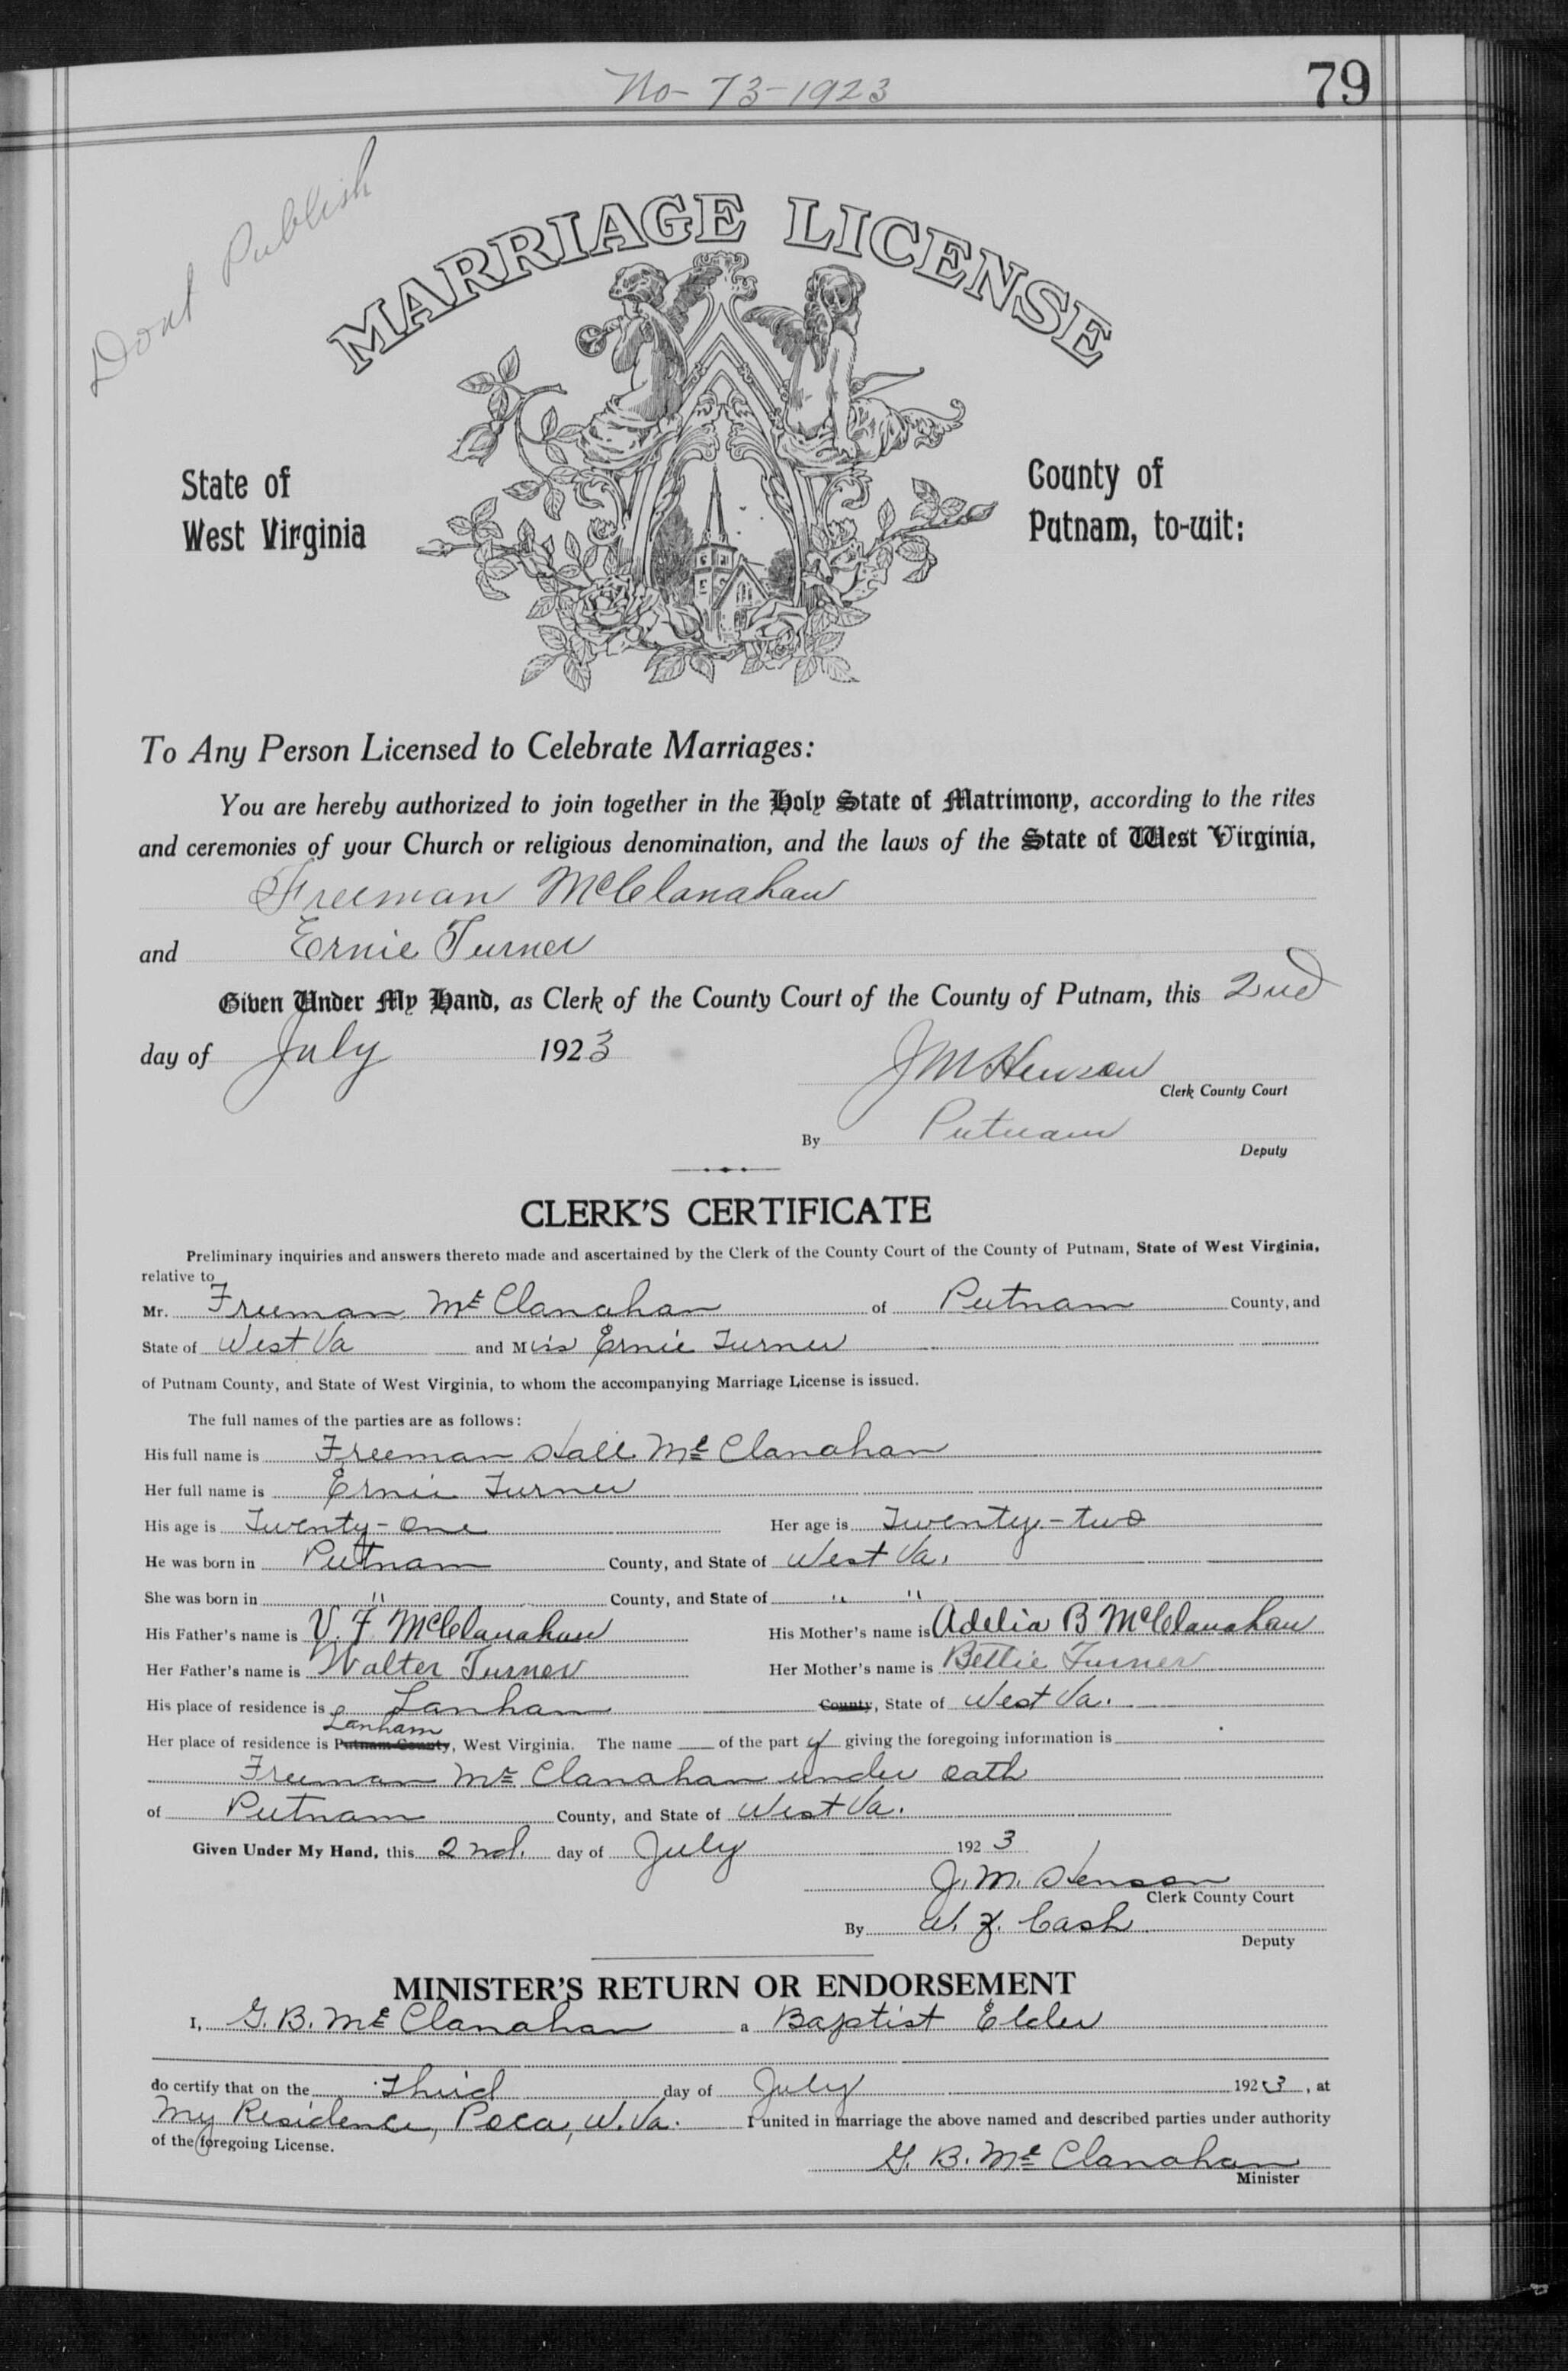 No- 73-1923
79
Dont Publish
MARRIAGE LICENSE
State of
West Virginia
County of
Putnam, to-wit:
To Any Person Licensed to Celebrate Marriages:
You are hereby authorized to join together in the Holy State of Matrimony, according to the rites
and ceremonies of your Church or religious denomination, and the laws of the State of West Virginia,
Freeman McClanahan
and Ernie Turner
Given Under My Hand, as Clerk of the County Court of the County of Putnam, this 2nd
day of July 1923
J M Henson
Clerk County Court
By Putnam
Deputy
CLERK'S CERTIFICATE
Preliminary inquiries and answers thereto made and ascertained by the Clerk of the County Court of the County of Putnam, State of West Virginia,
relative to
Mr. Freeman McClanahan of Putnam County, and
State of West Va and Miss Ernie Turner
of Putnam County, and State of West Virginia, to whom the accompanying Marriage License is issued.
The full names of the parties are as follows:
His full name is Freeman Hall McClanahan
Her full name is Ernie Turner
His age is Twenty-One Her age is Twenty-two
He was born in Putnam County, and State of West Va.
She was born in " County, and State of " "
His Father's name is V. F McClanahan His Mother's name is Adelia B McClanahan
Her Father's name is Walter Turner Her Mother's name is Bettie Turner
His place of residence is Lanham County, State of West Va.
Lanham
Her place of residence is Putnam County, West Virginia. The name of the part y giving the foregoing information is
Freeman McClanahan under oath
of Putnam County, and State of West Va.
Given Under My Hand, this 2nd. day of July 1923
J. M. Henson
Clerk County Court
By W. Z. Cash
Deputy
MINISTER'S RETURN OR ENDORSEMENT
I, G. B. McClanahan a Baptist Elder
do certify that on the Third day of July 1923, at
My Residence, Poca, W. Va. I united in marriage the above named and described parties under authority
of the foregoing License.
G. B. McClanahan
Minister